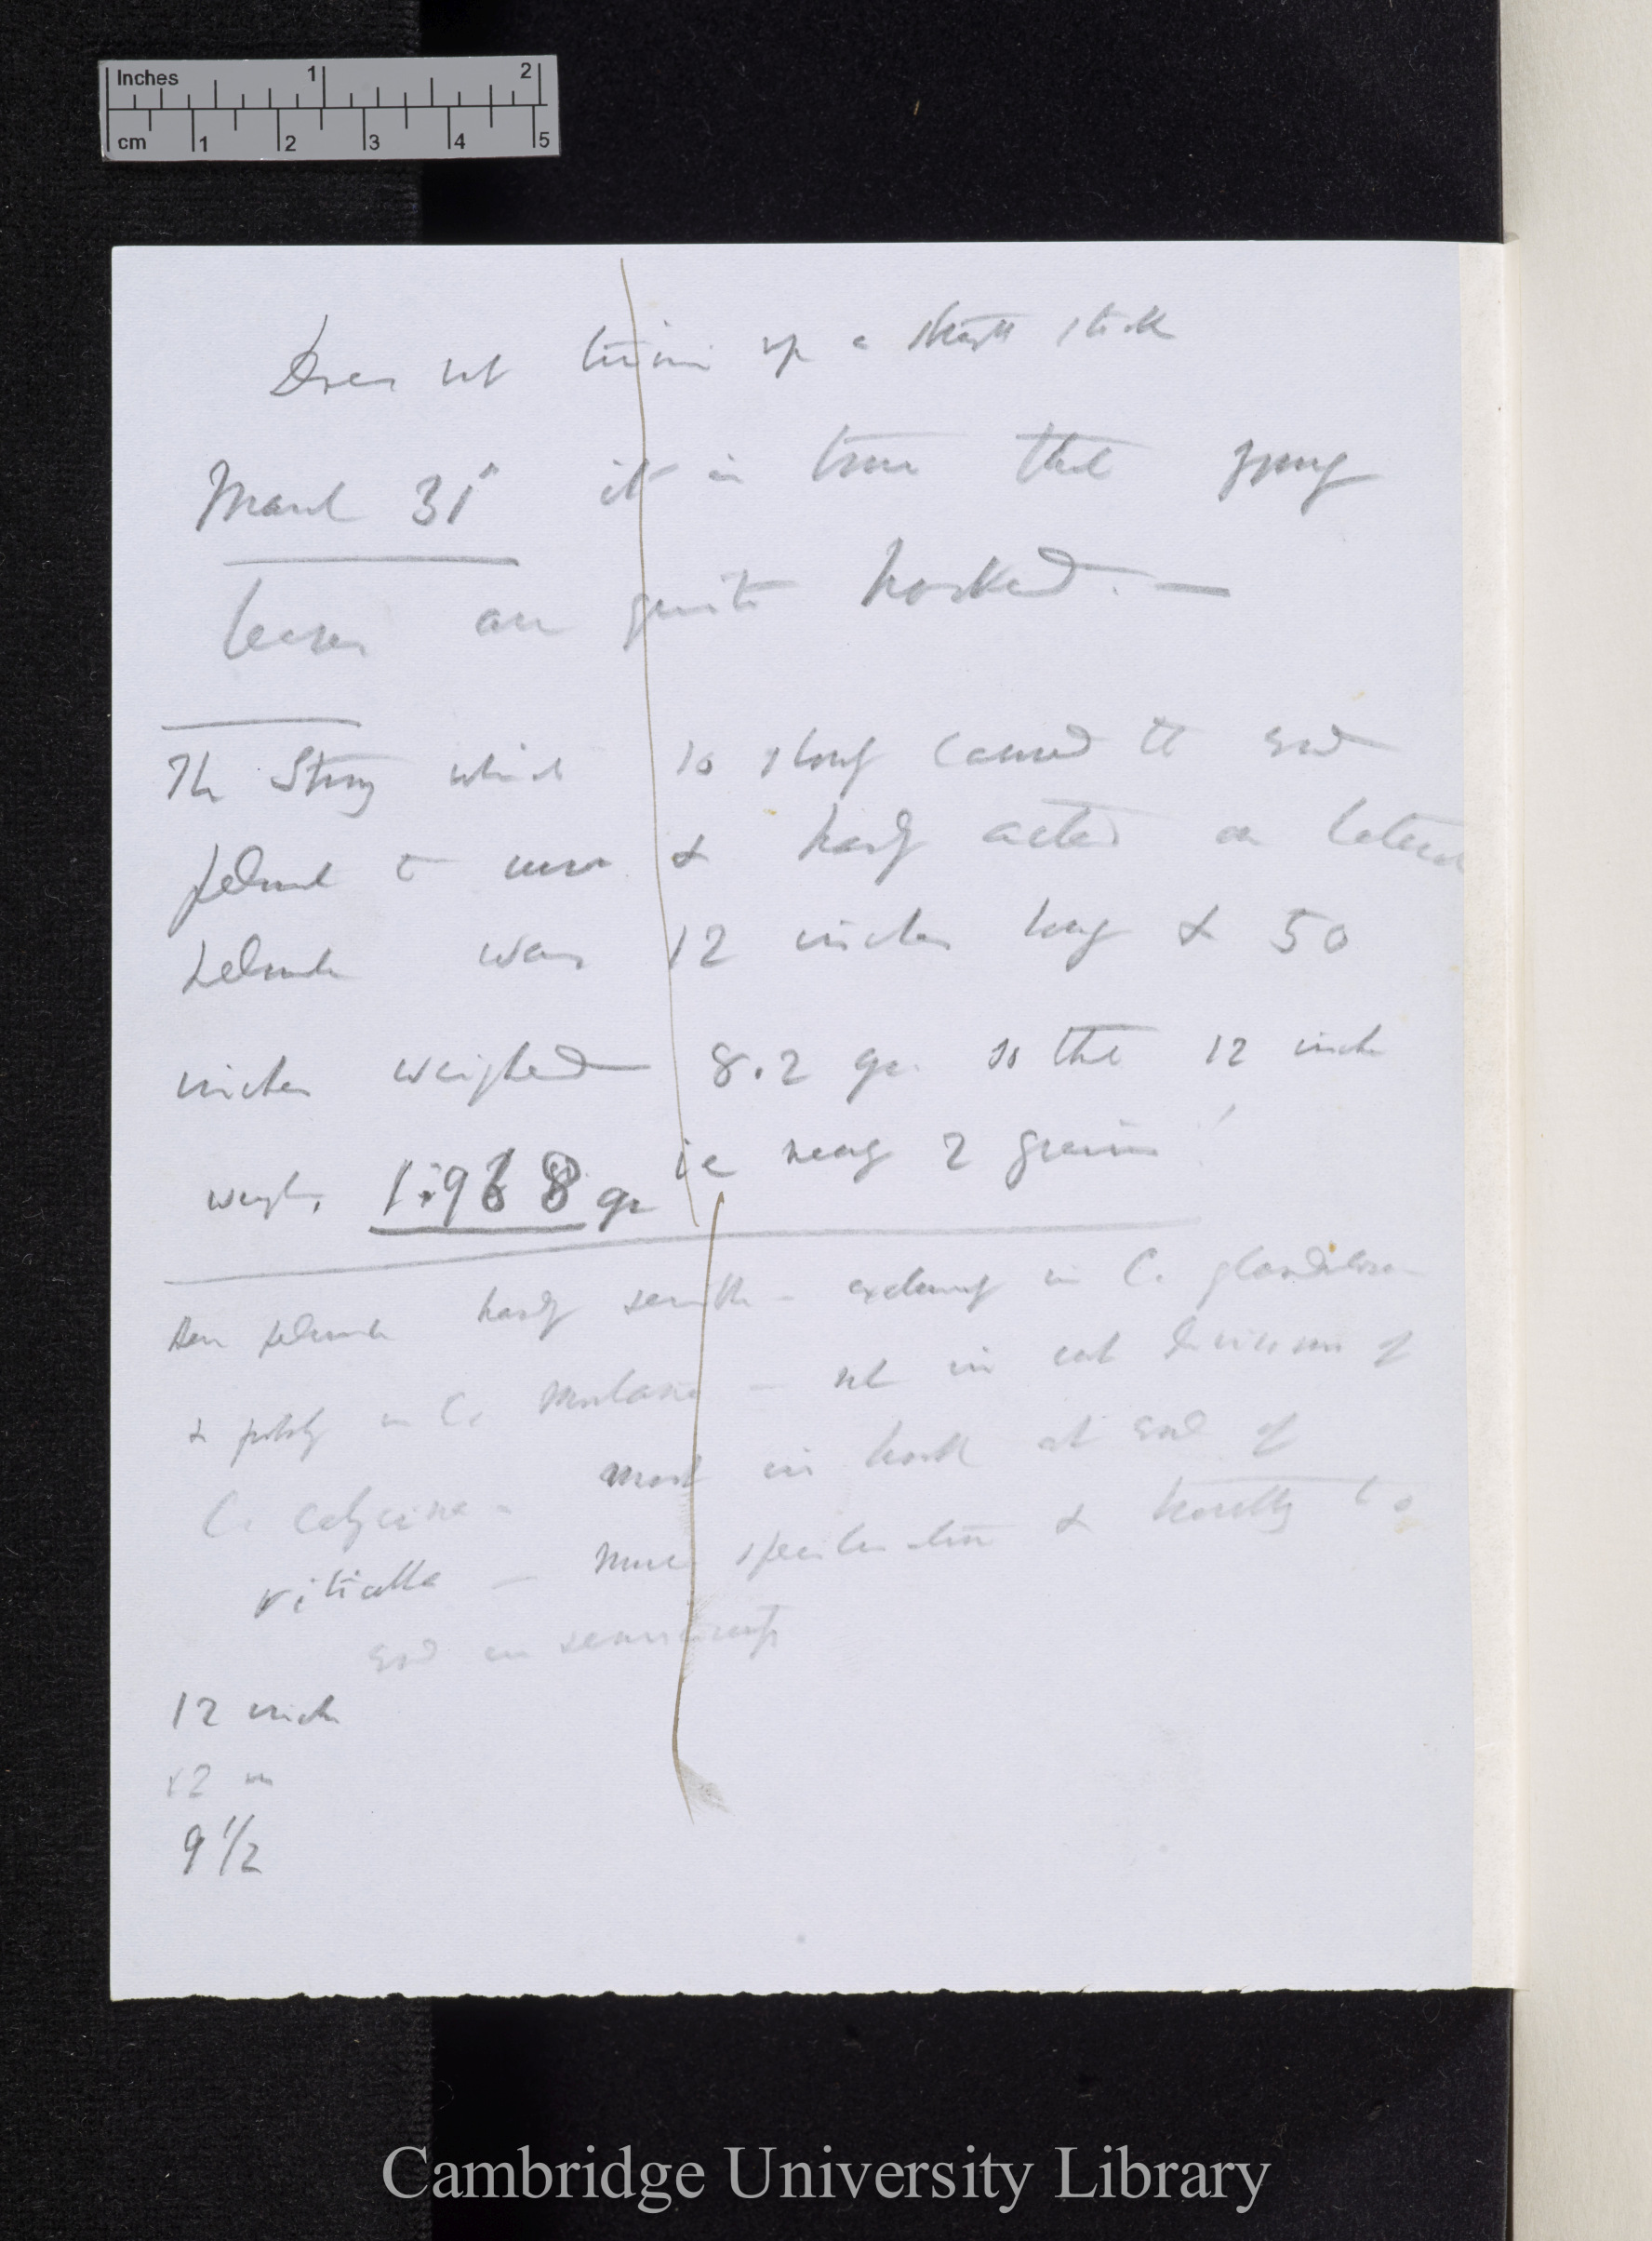 Inches 1 2
cm 1 2 3 4 5
Does not twine up a stick
March 31st it is true that young
leaves are quite hooked. —
The String which so strongly caused the end
petiole to move & hardly acted on lateral
petioles was 12 inches long & 50
inches weighed 8.2 gr. so that 12 inches
weighs 1.968 gr ie nearly 2 grains
petioles hardly sensitive — in C. glandulosa
& probably in C. Montana — not in cut divisions of
C. calycina — Most in hook at end of
viticella —
end on sensitivity
12 inch
12 in
9 1/2
Cambridge University Library